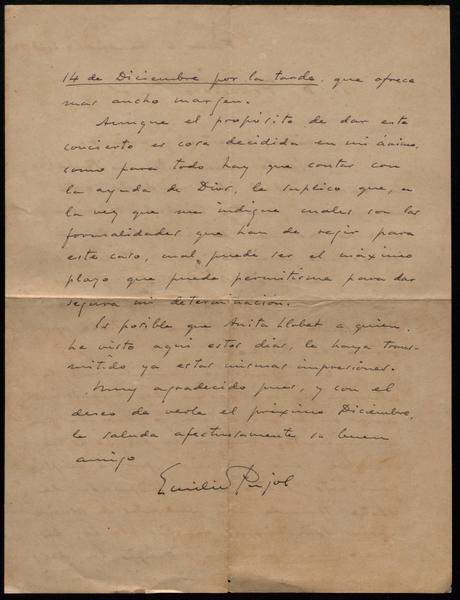 14 de Diciembre por la tarde, que ofrece
mas ancho margen.
Aunque el propósito de dar este
concierto es cosa decidida en mi ánimo,
como para todo hay que contar con
la ayuda de Dios, le suplico que, a
la vez que me indique cuales son las
formalidades que han de regir para
este caso, cual puede ser el máximo
plazo que puede permitirme para dar
segura mi determinación.
Es posible que Anita Llobet a quien
he visto aqui estos dias, le haya trans-
mitido ya estas mismas impresiones.
Muy agradecido pues, y con el
deseo de verle el próximo Diciembre,
le saluda afectuosamente su buen
amigo
Emilio Pujol